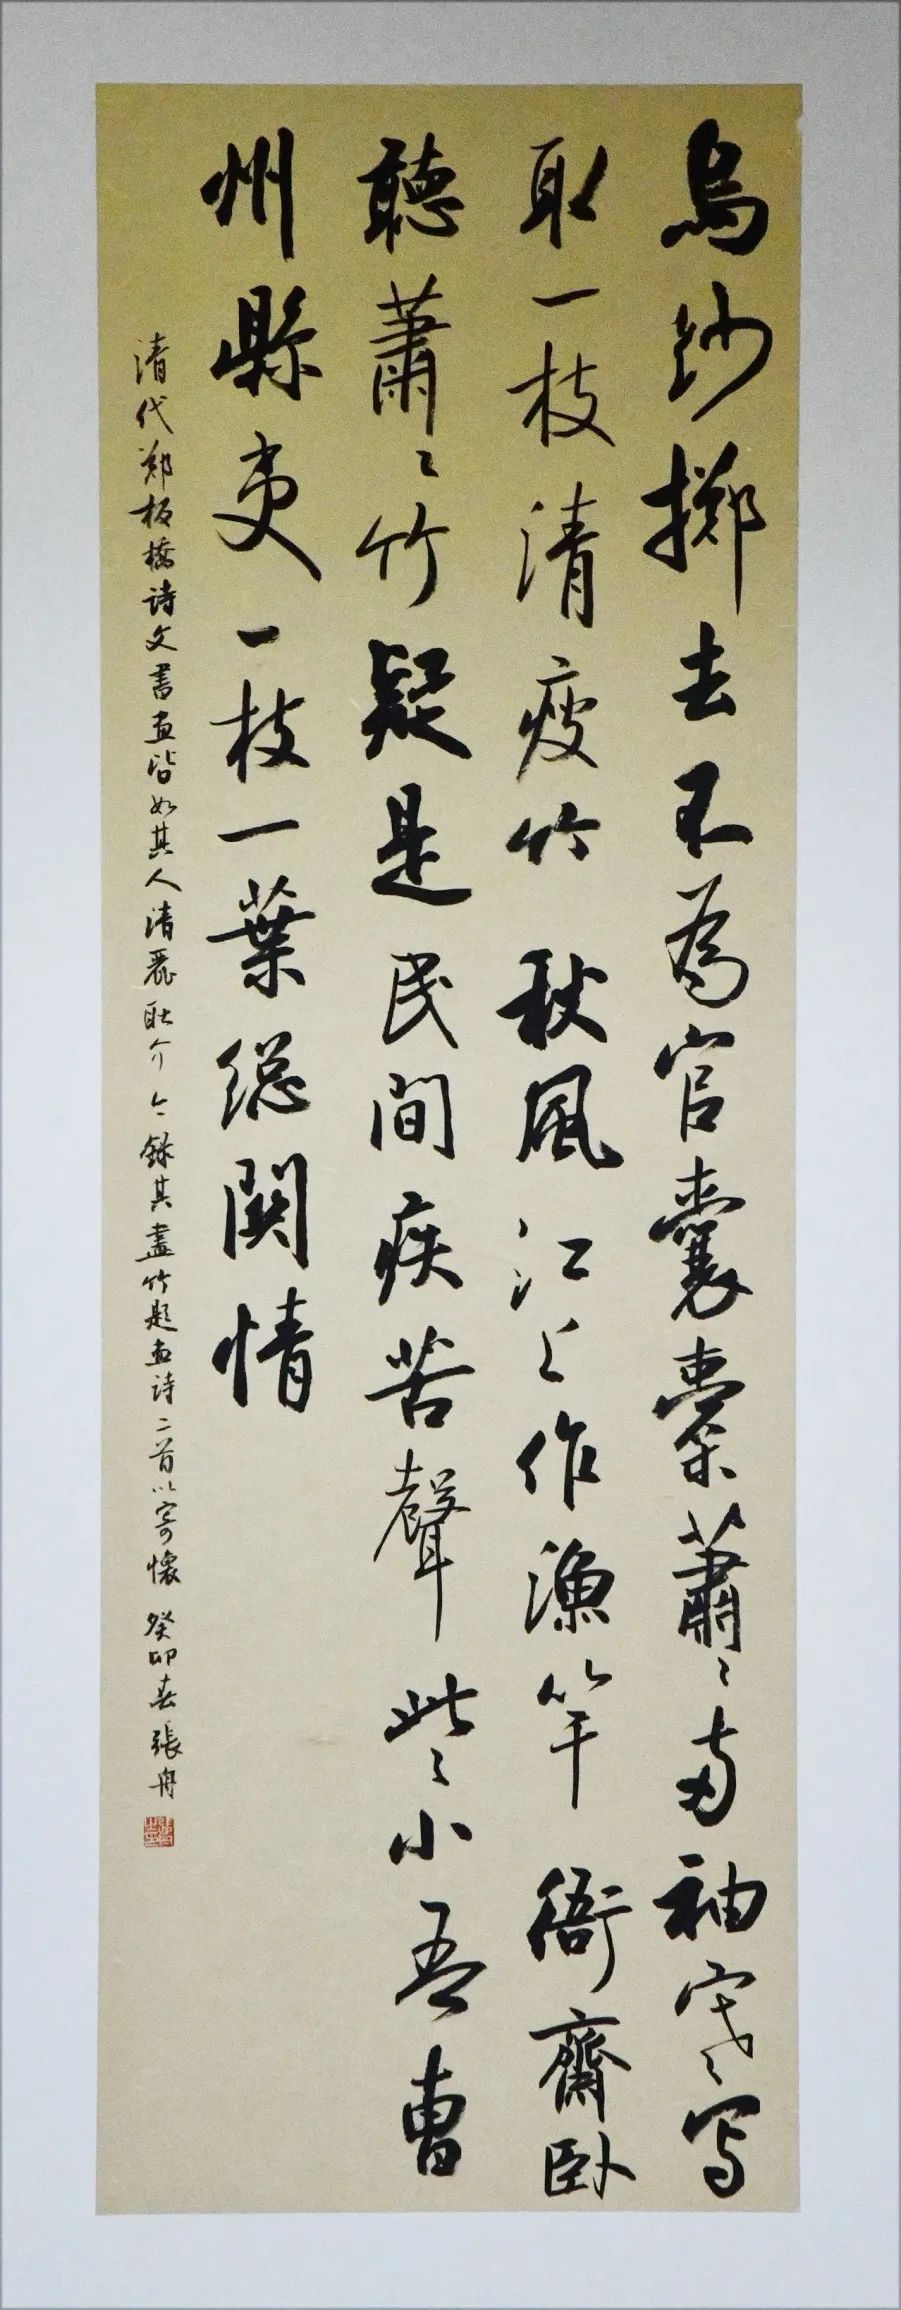 烏紗擲去不為官囊橐蕭〻兩袖寒寫
取一枝清瘦竹秋風江上作漁竿衙齋臥
聽蕭〻竹疑是民間疾苦聲些〻小吾曹
州縣吏一枝一葉總關情
清代鄭板橋詩文書画皆如其人清麗耿介今錄其畫竹題画詩二首以寄懷癸卯春張舟